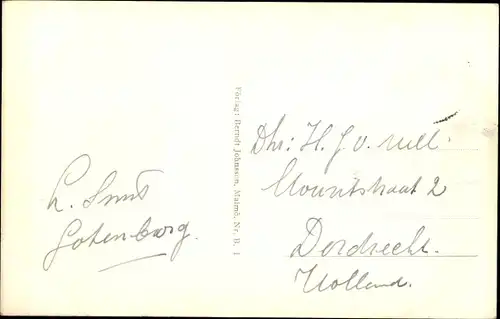 L. Smit
Gotenburg.
Förlag: Berndt Johnsson, Malmö. Nr. B. 1
Dhr: H. J. v. Mill.
2
Dordrecht.
Holland.